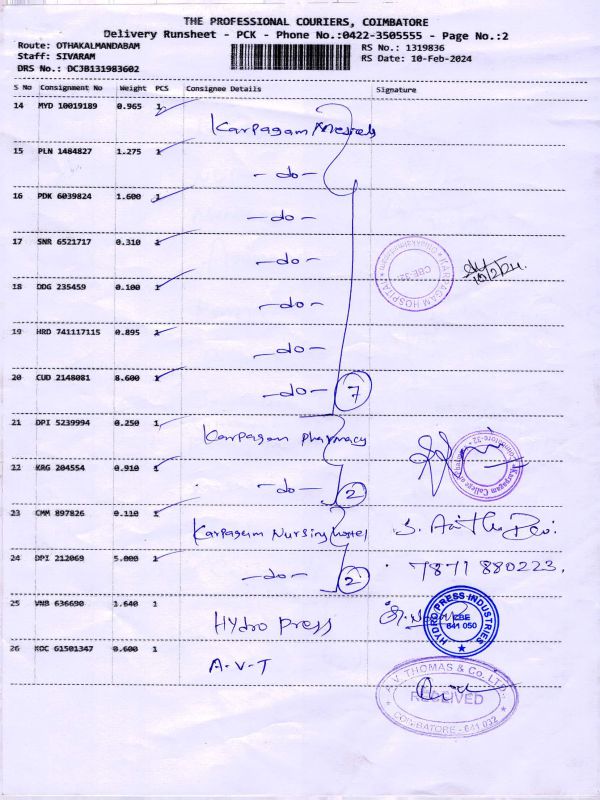 THE PROFESSIONAL COURIERS, COIMBATORE
Delivery Runsheet - PCK - Phone No.:0422-3505555 - Page No.:2
Route: OTHAKALMANDABAM
RS No.: 1319836
Staff: SIVARAM
RS Date: 10-Feb-2024
DRS No.: DCJB131983602
S No Consignment No Weight PCS Consignee Details Signature
14 MYD 10019189 0.965 1
Karpagam
15 PLN 1484827 1.275 1
-do-
16 PDK 6039824 1.600 1
-do-
17 SNR 6521717 0.310 1
-do-
KARPAGAM HOSPITAL
CBE-32
10/2/24.
18 DDG 235459 0.100 1
-do-
19 HRD 741117115 0.895 1
-do-
20 CUD 2148081 8.600 1
-do- 7
21 DPI 5239994 0.250 1
Karpagam Pharmacy
Karpagam College of
Coimbatore-32
22 KRG 204554 0.910 1
-do- 2
23 CMM 897826 0.110 1
Karpagam Nursing hostel
24 DPI 212069 5.000 1
-do- 2
7871 880223.
25 VNB 636690 1.640 1
Hydro Press
HYDRO PRESS INDUSTRIES
CBE
641 050
26 KOC 61501347 0.600 1
A.V.T
A.V. THOMAS & Co. LTD.
RECEIVED
COIMBATORE - 641 032